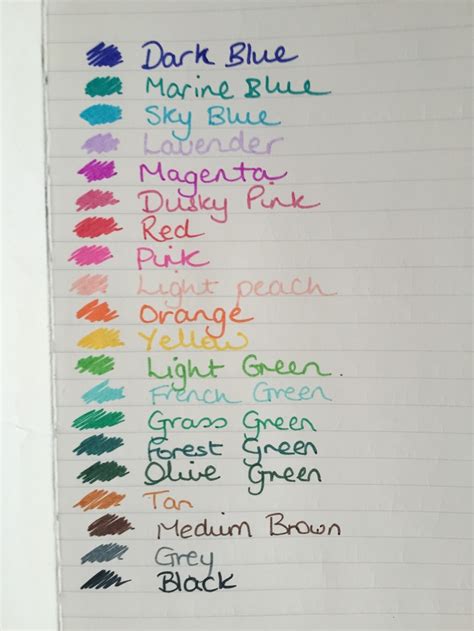 Dark Blue
Marine Blue
Sky Blue
Lavender
Magenta
Dusky Pink
Red
Pink
Light peach
Orange
Yellow
Light Green.
French Green
Grass Green
Forest Green
Olive Green
Tan
Medium Brown
Grey
Black